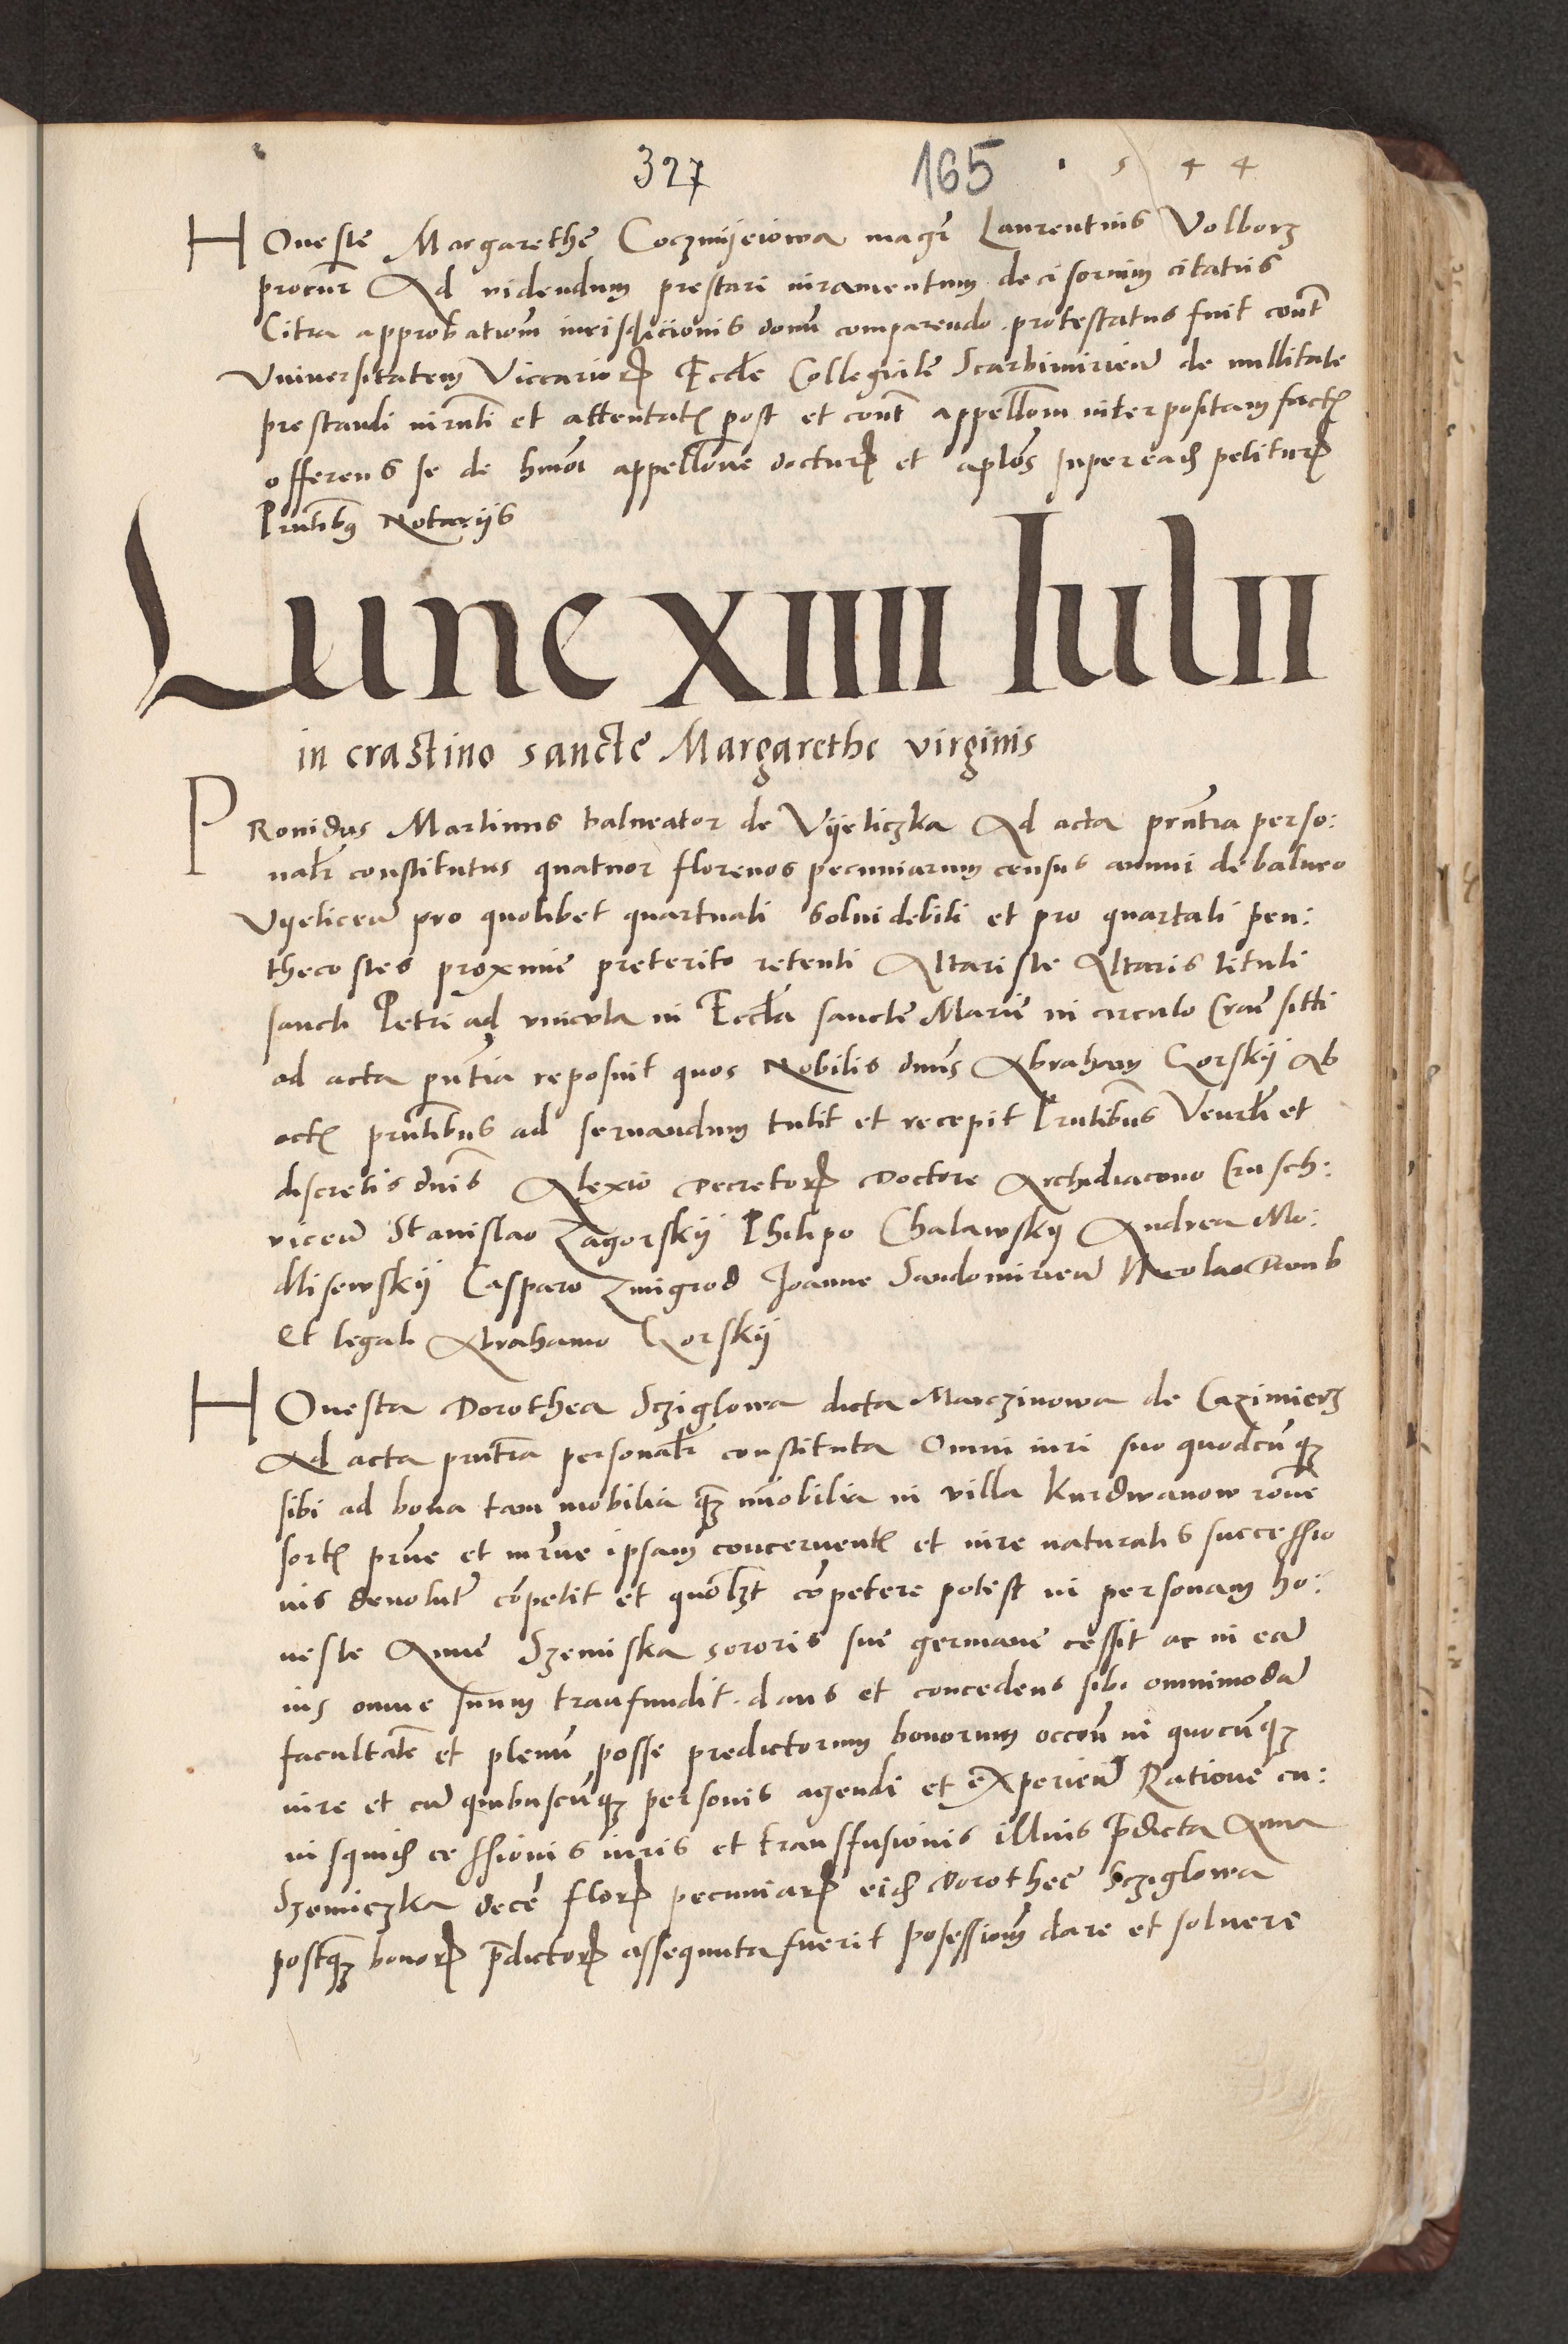 327 165 1 5 4 4
Honeste Margarethe Coczmijeiowa magr Laurentius Volborz
procur Ad videndum prestari iuramentum decisorium citatus
Citra approbatiom iurisdicionis domi comparendo protestatus fuit cont
Vniuersitatem Viccariorꝝ Eccle Collegiate Scarbimirien de nullitate
prestandi iurnti et attentatꝭ post et cont appellom interpositam factꝭ
offerens se de hmoi appellone docturꝝ et aplos super eadꝫ petiturꝝ
Pntibꝰ Notarijs
Lune XIIII Iulii
in crastino sancte Margarethe virginis
Prouidus Martinus balneator de Vijeliczka Ad acta prntia perso:
nalr constitutus quatuor florenos pecuniarum census annui de balneo
Vijelicen pro quolibet quartuali solui debiti et pro quartali pen:
thecostes proxime preterito retenti Altariste Altaris tituli
sancti Petri ad vincula in Eccla sancte Marie in circulo Crac sitti
ad acta pntia reposuit quos Nobilis dnus Abraham Gorskij Ab
actꝭ prntibus ad seruandum tulit et recepit Pntibus Venrli et
discretis dnis Alexio Decretorꝝ Doctore Archidiacono Crusch:
vicen Stanislao Zagorskij Philipo Chalawskij Andrea Mo:
dlisewskij Casparo Zmigrod Joanne Sandomirien Nicolao Damb
Et legali Abrahamo Gorskij
Honesta Dorothea Scziglowa dicta Marczinowa de Cazimierz
Ad acta prntia personalr constituta Omni iuri suo quodcunqꝫ
sibi ad bona tam mobilia qꝫ imobilia in villa Kurdwanow rone
sortꝭ prne et mrne ipsam concernentꝭ et iure naturalis successio
nis deuolutꝭ competit et quolꝫt competere potest in personam ho:
neste Anne Szemiska sororis sue germane cessit ac in ea
ius omne suum transfundit dans et concedens sibi omnimoda
facultate et plenu posse predictorum bonorum occone in quocunqꝫ
iure et cu quibuscunqꝫ personis agendi et experien Ratione cu:
iusquidꝫ cessionis iuris et transfusionis illius predicta Anna
Szemiczka dece florꝝ pecuniarꝝ eidꝫ Dorothee Scziglowa
postqꝫ bonorꝝ predictorꝝ assequuta fuerit possessiom dare et soluere